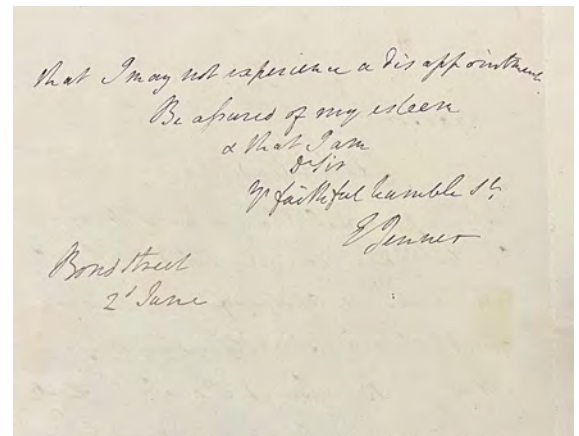 that I may not experience a disappointment
Be assured of my esteem
& that I am
Dr Sir
Yr faithful humble St.
E Jenner
Bond Street
2d June